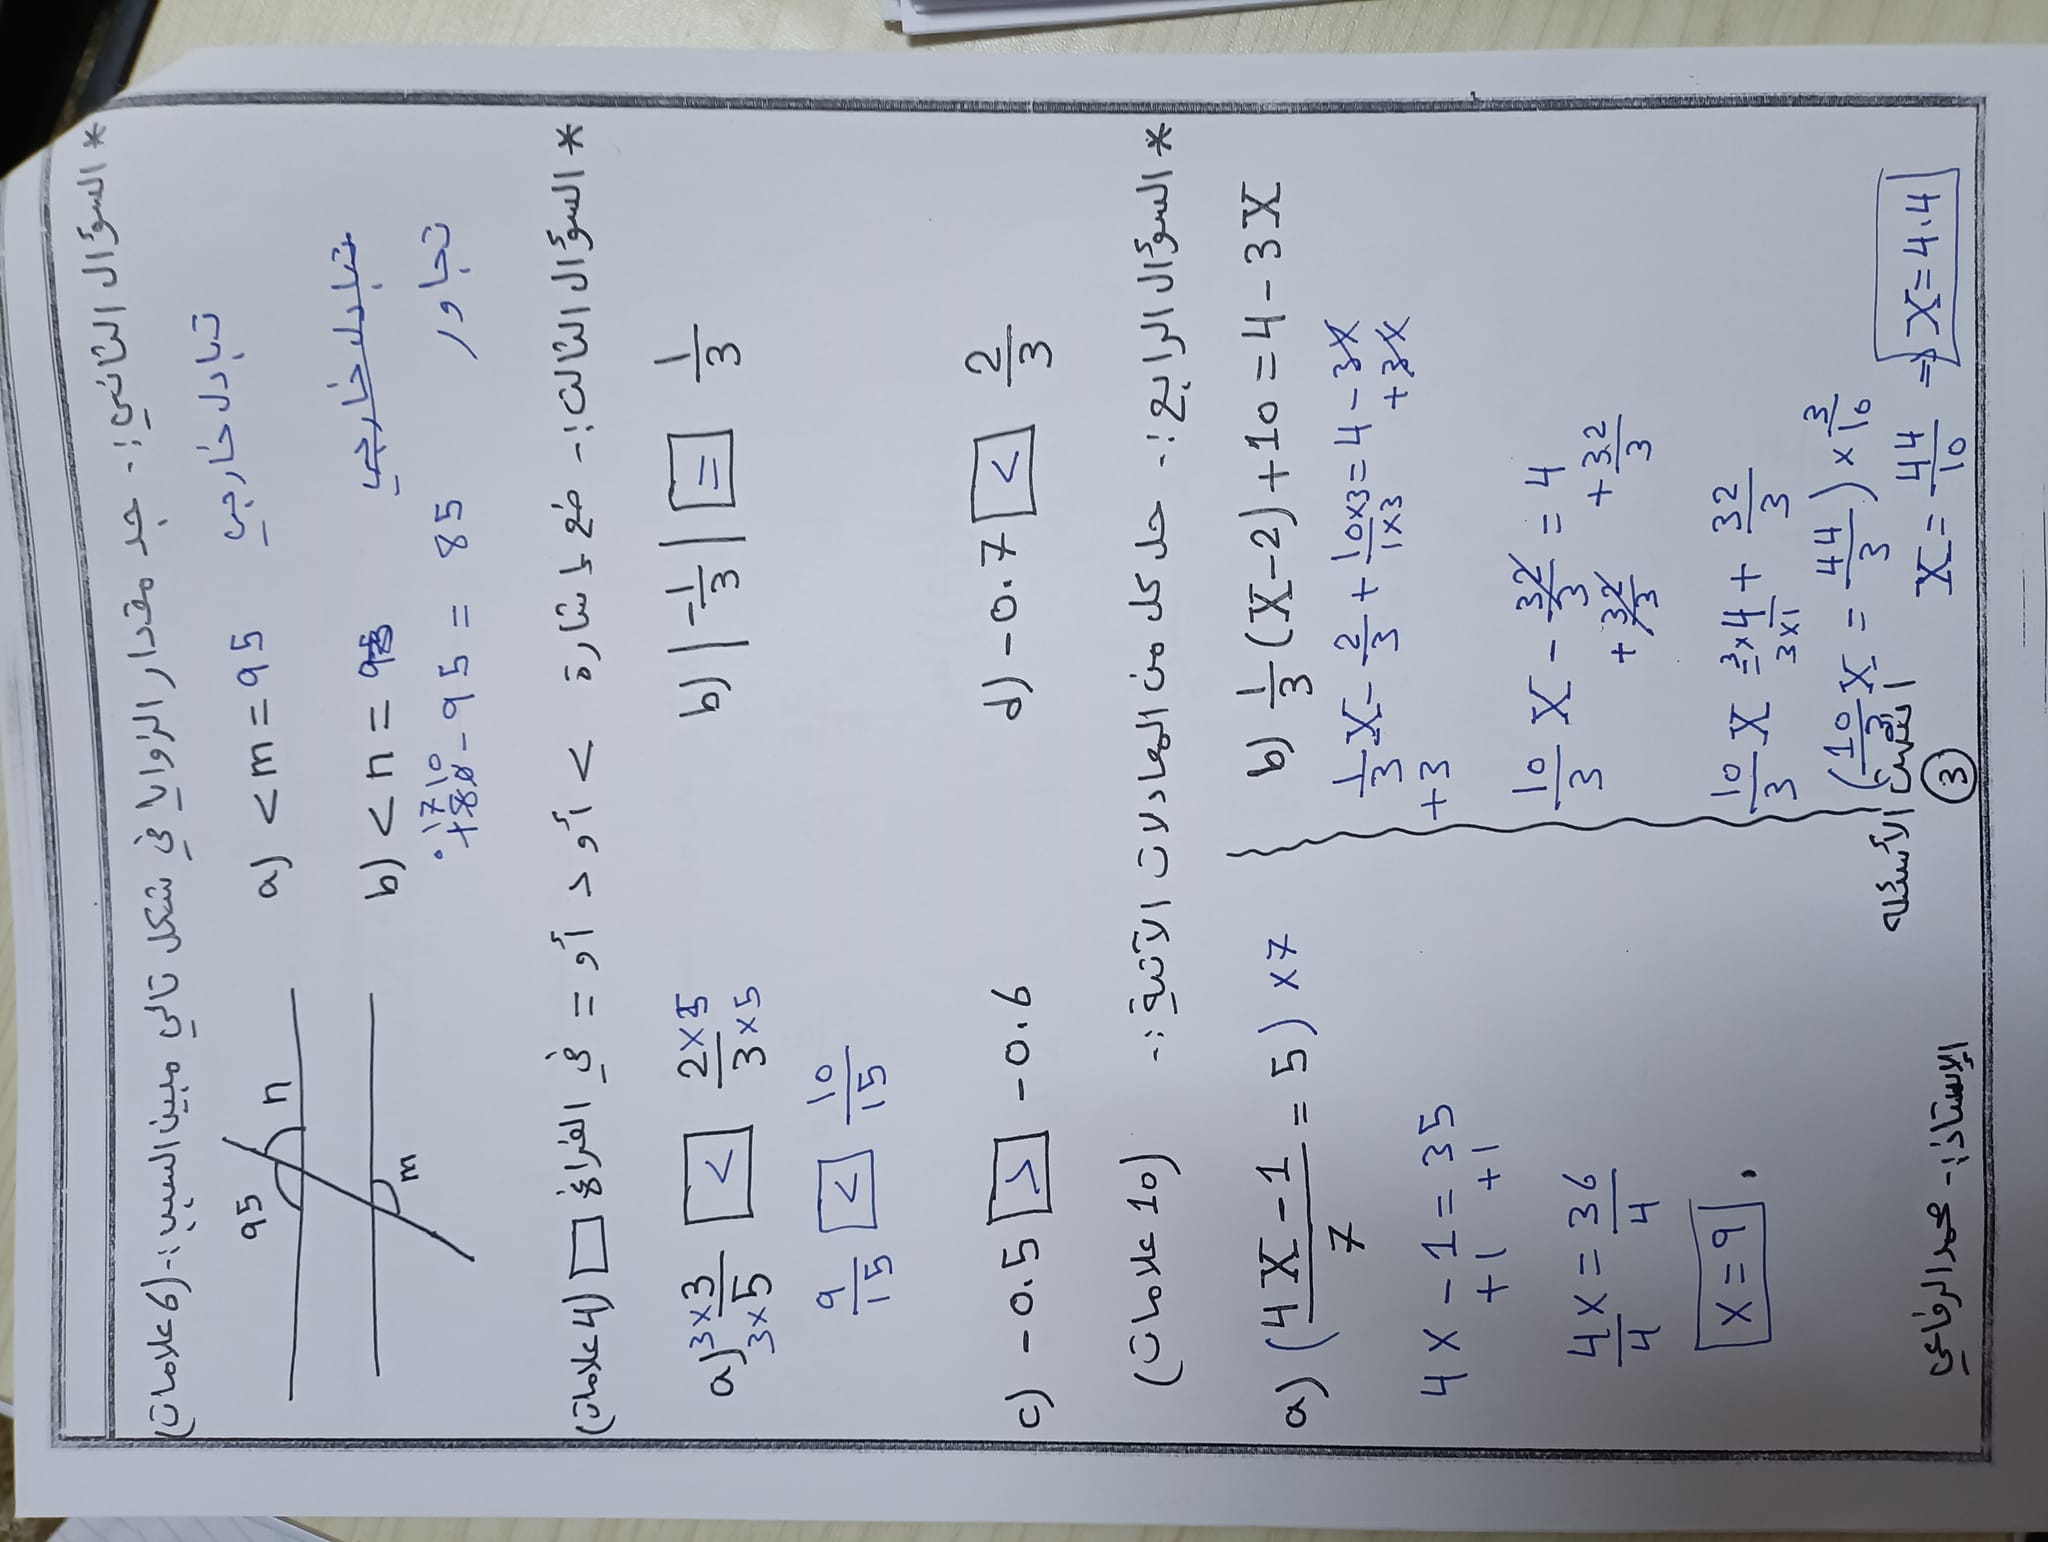 * السؤال الثاني :- جد مقدار الزوايا في شكل تالي مبين السبب :- (6 علامات)
95
n
m
a) <m = 95 تبادل خارجي
b) <n = 95 تبادل خارجي
180 - 95 = 85 تجاور
* السؤال الثالث :- ضع إشارة > أو < أو = في الفراغ □ (4 علامات)
a) 3×3/3×5 < 2×5/3×5
9/15 < 10/15
b) |-1/3| = 1/3
c) -0.5 > -0.6
d) -0.7 < 2/3
* السؤال الرابع :- حل كل من المعادلات الآتية :- (10 علامات)
a) (4X-1/7 = 5) ×7
4x - 1 = 35
+1 +1
4x/4 = 36/4
x = 9
b) 1/3(X-2)+10 = 4-3X
1/3X - 2/3 + 10×3/1×3 = 4 - 3X
+3 +3X
10/3 X - 32/3 = 4
+32/3 +32/3
10/3 X = 3×4/3×1 + 32/3
(10/3 X = 44/3) × 3/10
X = 44/10 ⇒ X = 4.4
انتهت الأسئلة
3
الإستاذ :- محمد الرفاعي